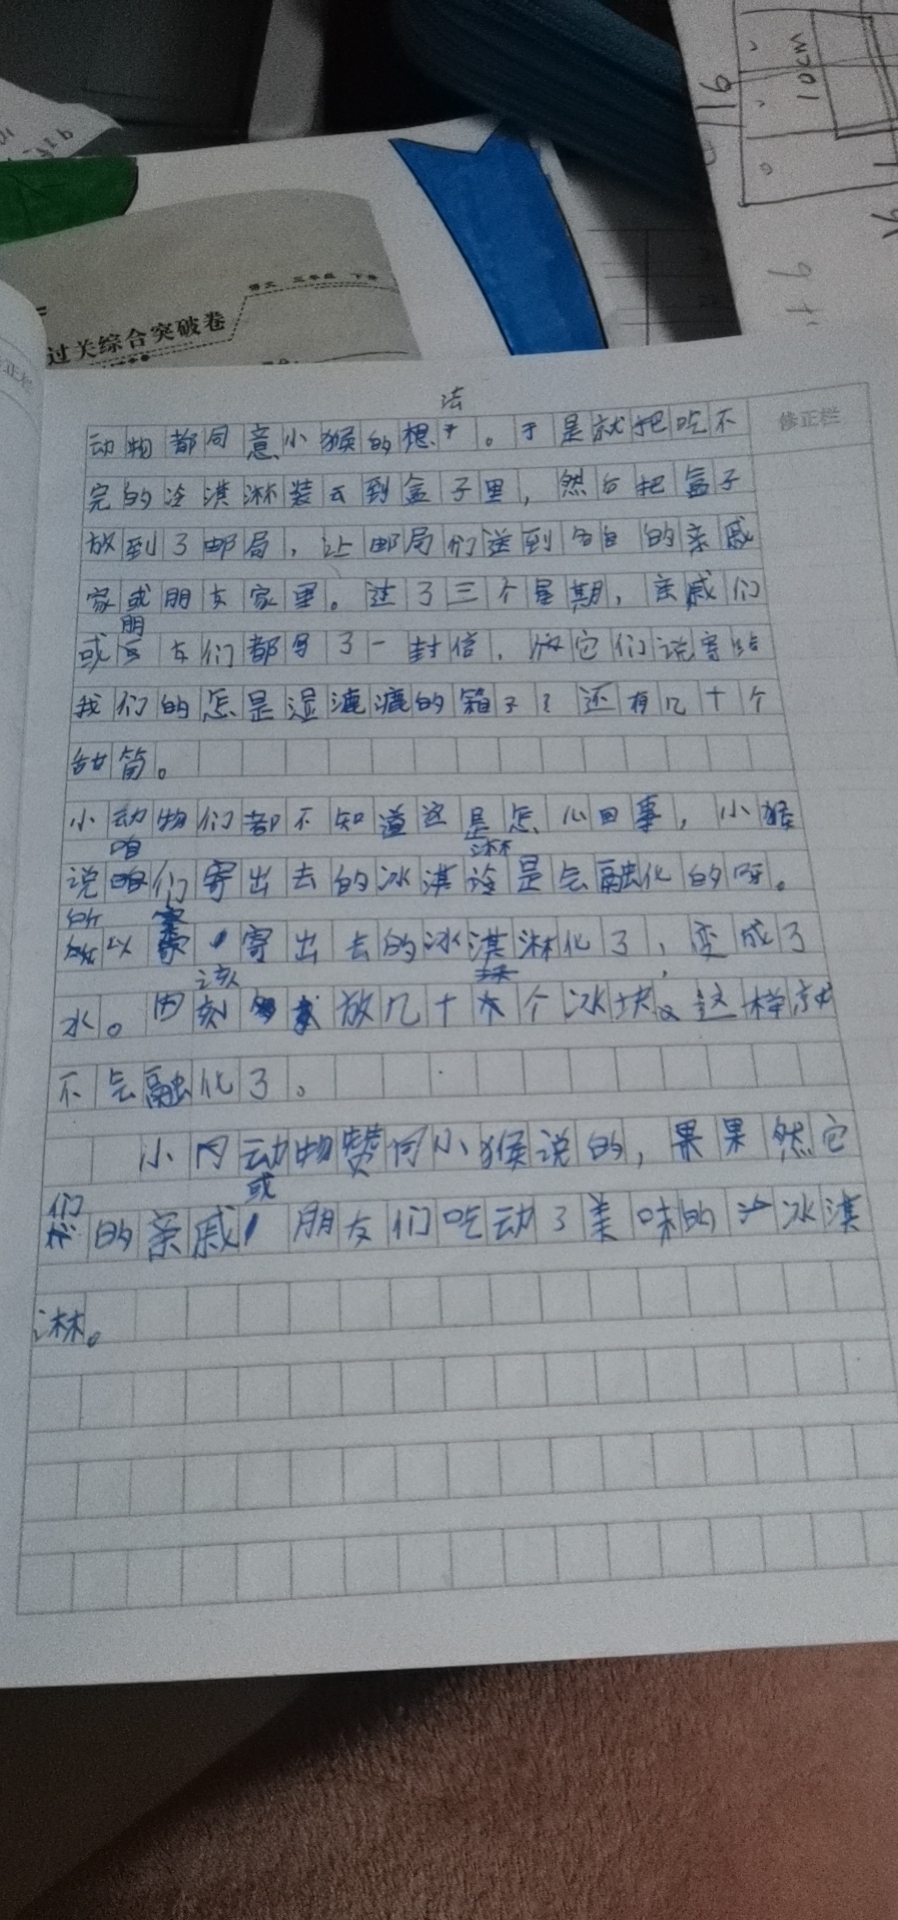 10cm
语文 三年级 下册
过关综合突破卷
修正栏
法
动物都同意小猴的想。于是就把吃不
完的冷淇淋装去到盒子里，然后把盒子
放到了邮局，让邮局们送到各自的亲戚
家或朋友家里。过了三个星期，亲戚们
朋
或友们都写了一封信，放它们说寄给
我们的怎是湿漉漉的箱子？还有几十个
甜筒。
小动物们都不知道这是怎么回事，小猴
咱 淋
说们寄出去的冰淇是会融化的呀。
所
以寄出去的冰淇淋化了，变成了
该
水。因放几十个冰块。这样就
不会融化了。
小内动物赞同小猴说的，果果然它
们 或
的亲戚朋友们吃动了美味的冰淇
淋。